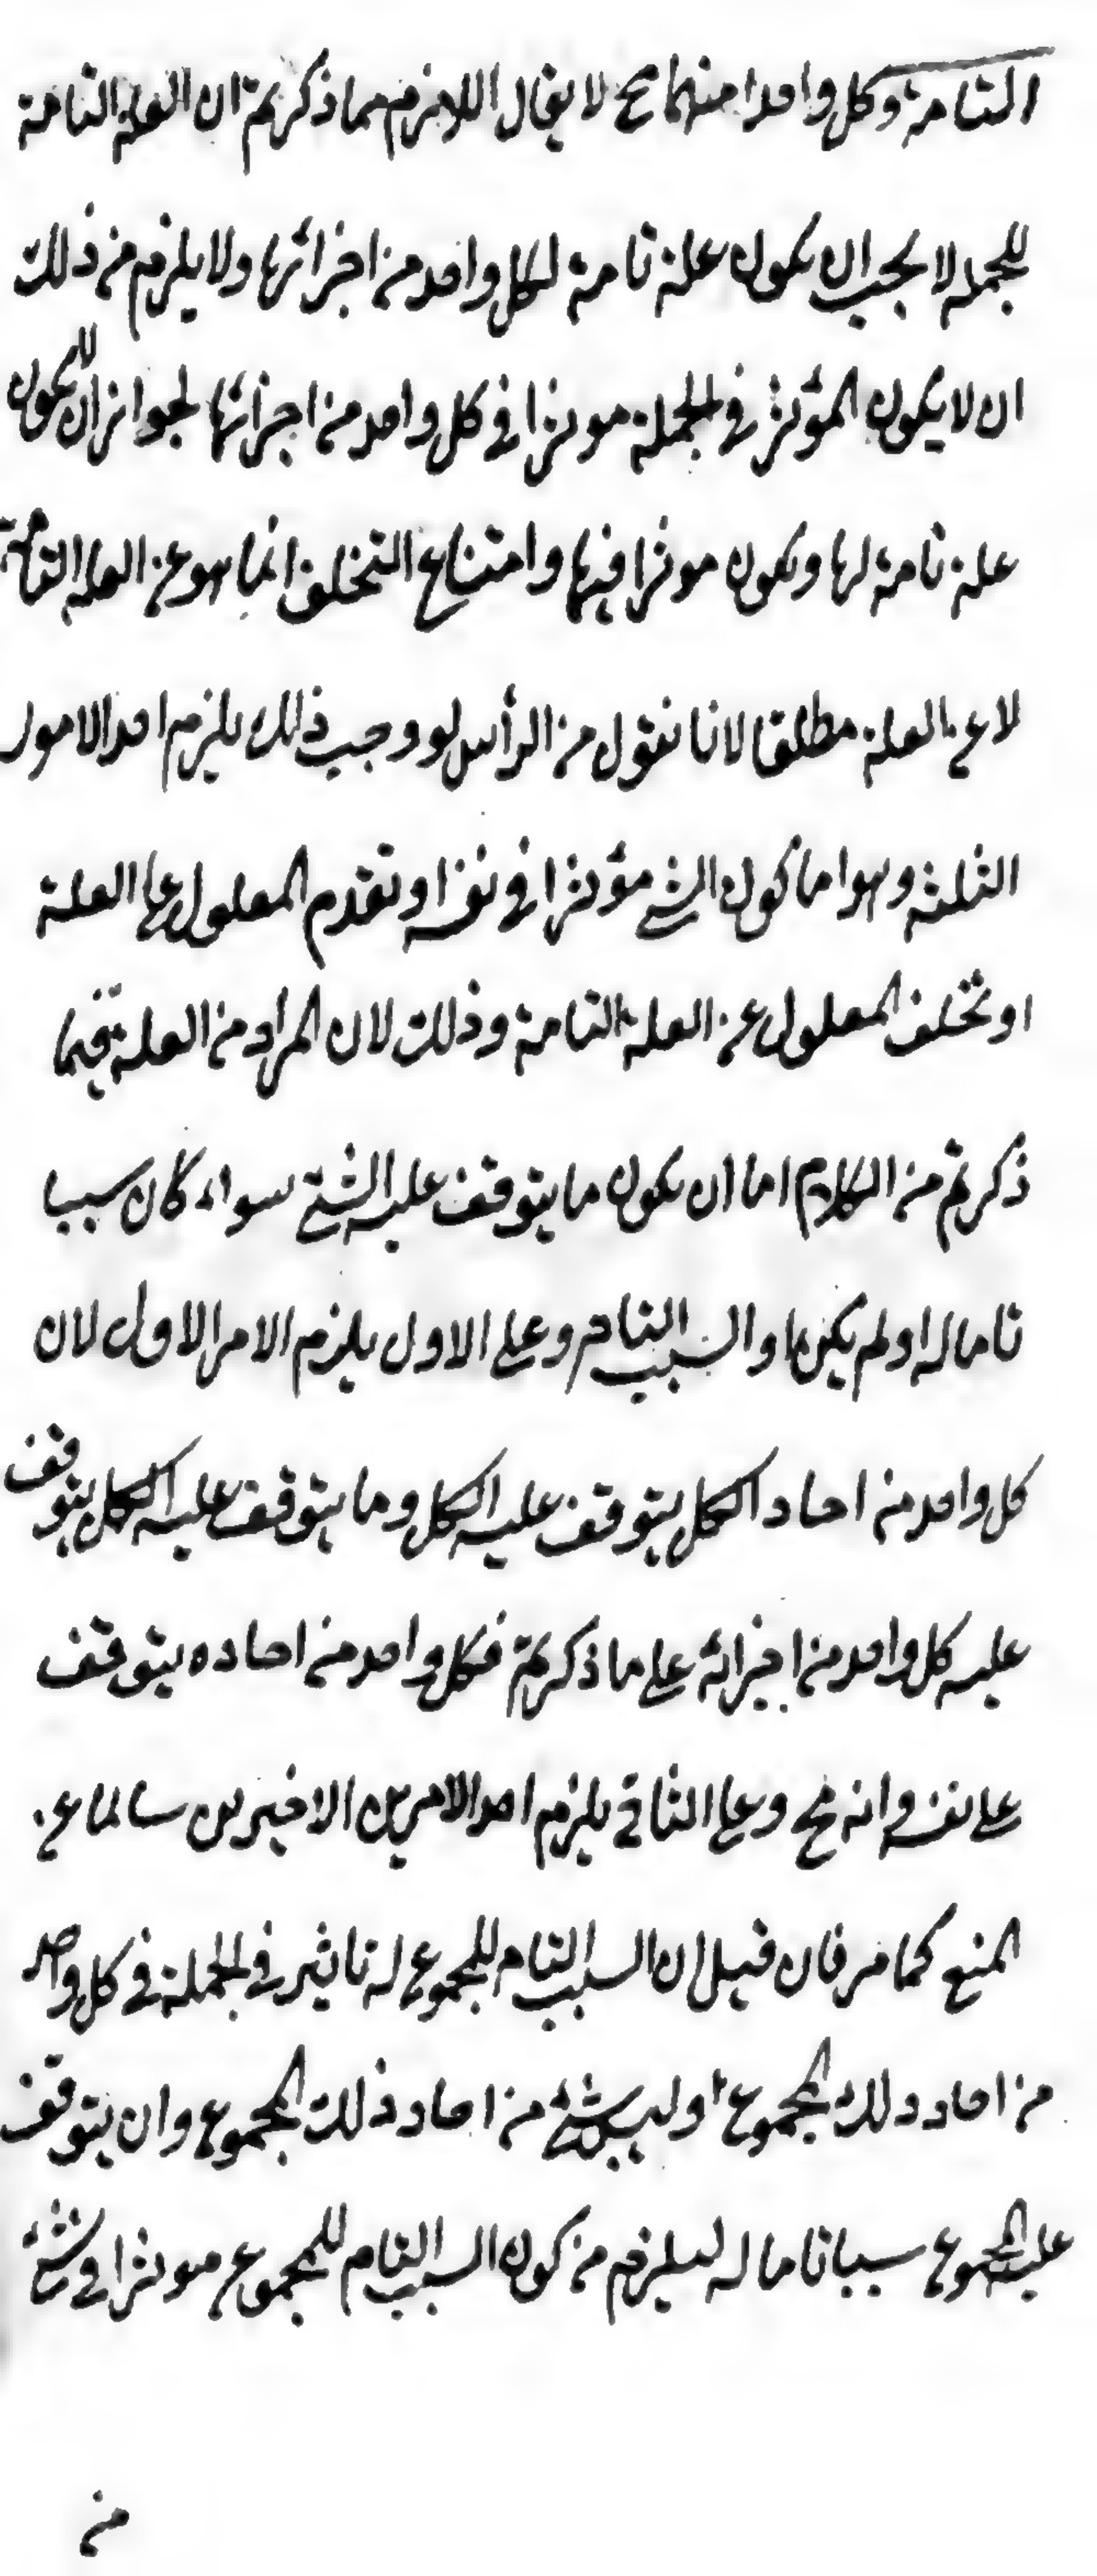 التامة وكل واحدا منهما مح لا يقال اللازم مما ذكرتم ان العلة التامة
للجملة لا يجب ان يكون علة تامة لكل واحد من اجزائها ولا يلزم من ذلك
ان لا يكون المؤثر في الجملة موثرا في كل واحد من اجزائها لجواز ان لا يكون
علة تامة لها ويكون موثرا فيها وامتناع التخلف انما هو عن العلة التامة
لا عن العلة مطلقا لانا نقول من الرأس لو وجب ذلك يلزم احد الامور
الثلثة وهو اما كون الشئ مؤثرا في نفسه او تقدم المعلول على العلة
او تخلف المعلول عن العلة التامة وذلك لان المراد من العلة فيما
ذكرتم من الكلام اما ان يكون ما يتوقف عليه الشئ سواء كان سببا
تاما له او لم يكن او السبب التام وعلى الاول يلزم الامر الاول لان
كل واحد من احاد الكل يتوقف عليه الكل وما يتوقف عليه الكل يتوقف
عليه كل واحد من اجزائه على ما ذكرتم فكل واحد من احاده يتوقف
على نفسه وانه مح وعلى الثاني يلزم احد الامرين الاخيرين سالما عن
المنع كما مر فان قيل ان السبب التام للمجموع له تاثير في الجملة في كل واحد
من احاد ذلك المجموع اوليس شئ من احاد ذلك المجموع وان يتوقف
عليه المجموع سببا تاما له ليلزم من كون السبب التام للمجموع موثرا في شئ
من